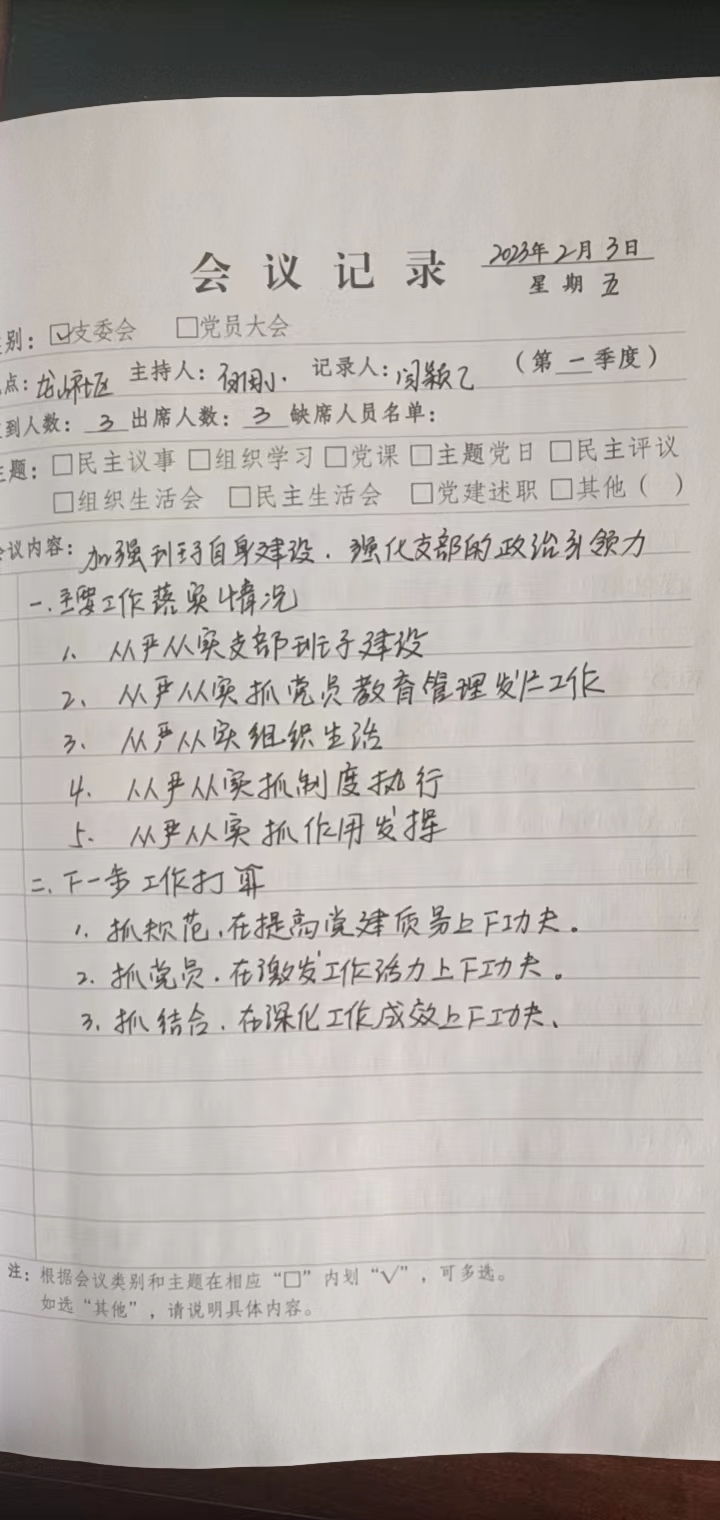 会议记录 2023年2月3日
星期五
别：☑支委会 □党员大会
点： 社区 主持人： 记录人：闫颖 （第一季度）
到人数：3 出席人数：3 缺席人员名单：
题：□民主议事 □组织学习 □党课 □主题党日 □民主评议
□组织生活会 □民主生活会 □党建述职 □其他（ ）
议内容：加强班子自身建设．强化支部的政治引领力
一．主要工作落实情况
1、从严从实支部班子建设
2、从严从实抓党员教育管理发展工作
3、从严从实组织生活
4、从严从实抓制度执行
5、从严从实抓作用发挥
二、下一步工作打算
1．抓规范，在提高党建质量上下功夫。
2．抓党员，在激发工作活力上下功夫。
3．抓结合．在深化工作成效上下功夫、
注：根据会议类别和主题在相应“□”内划“√”，可多选。
如选“其他”，请说明具体内容。